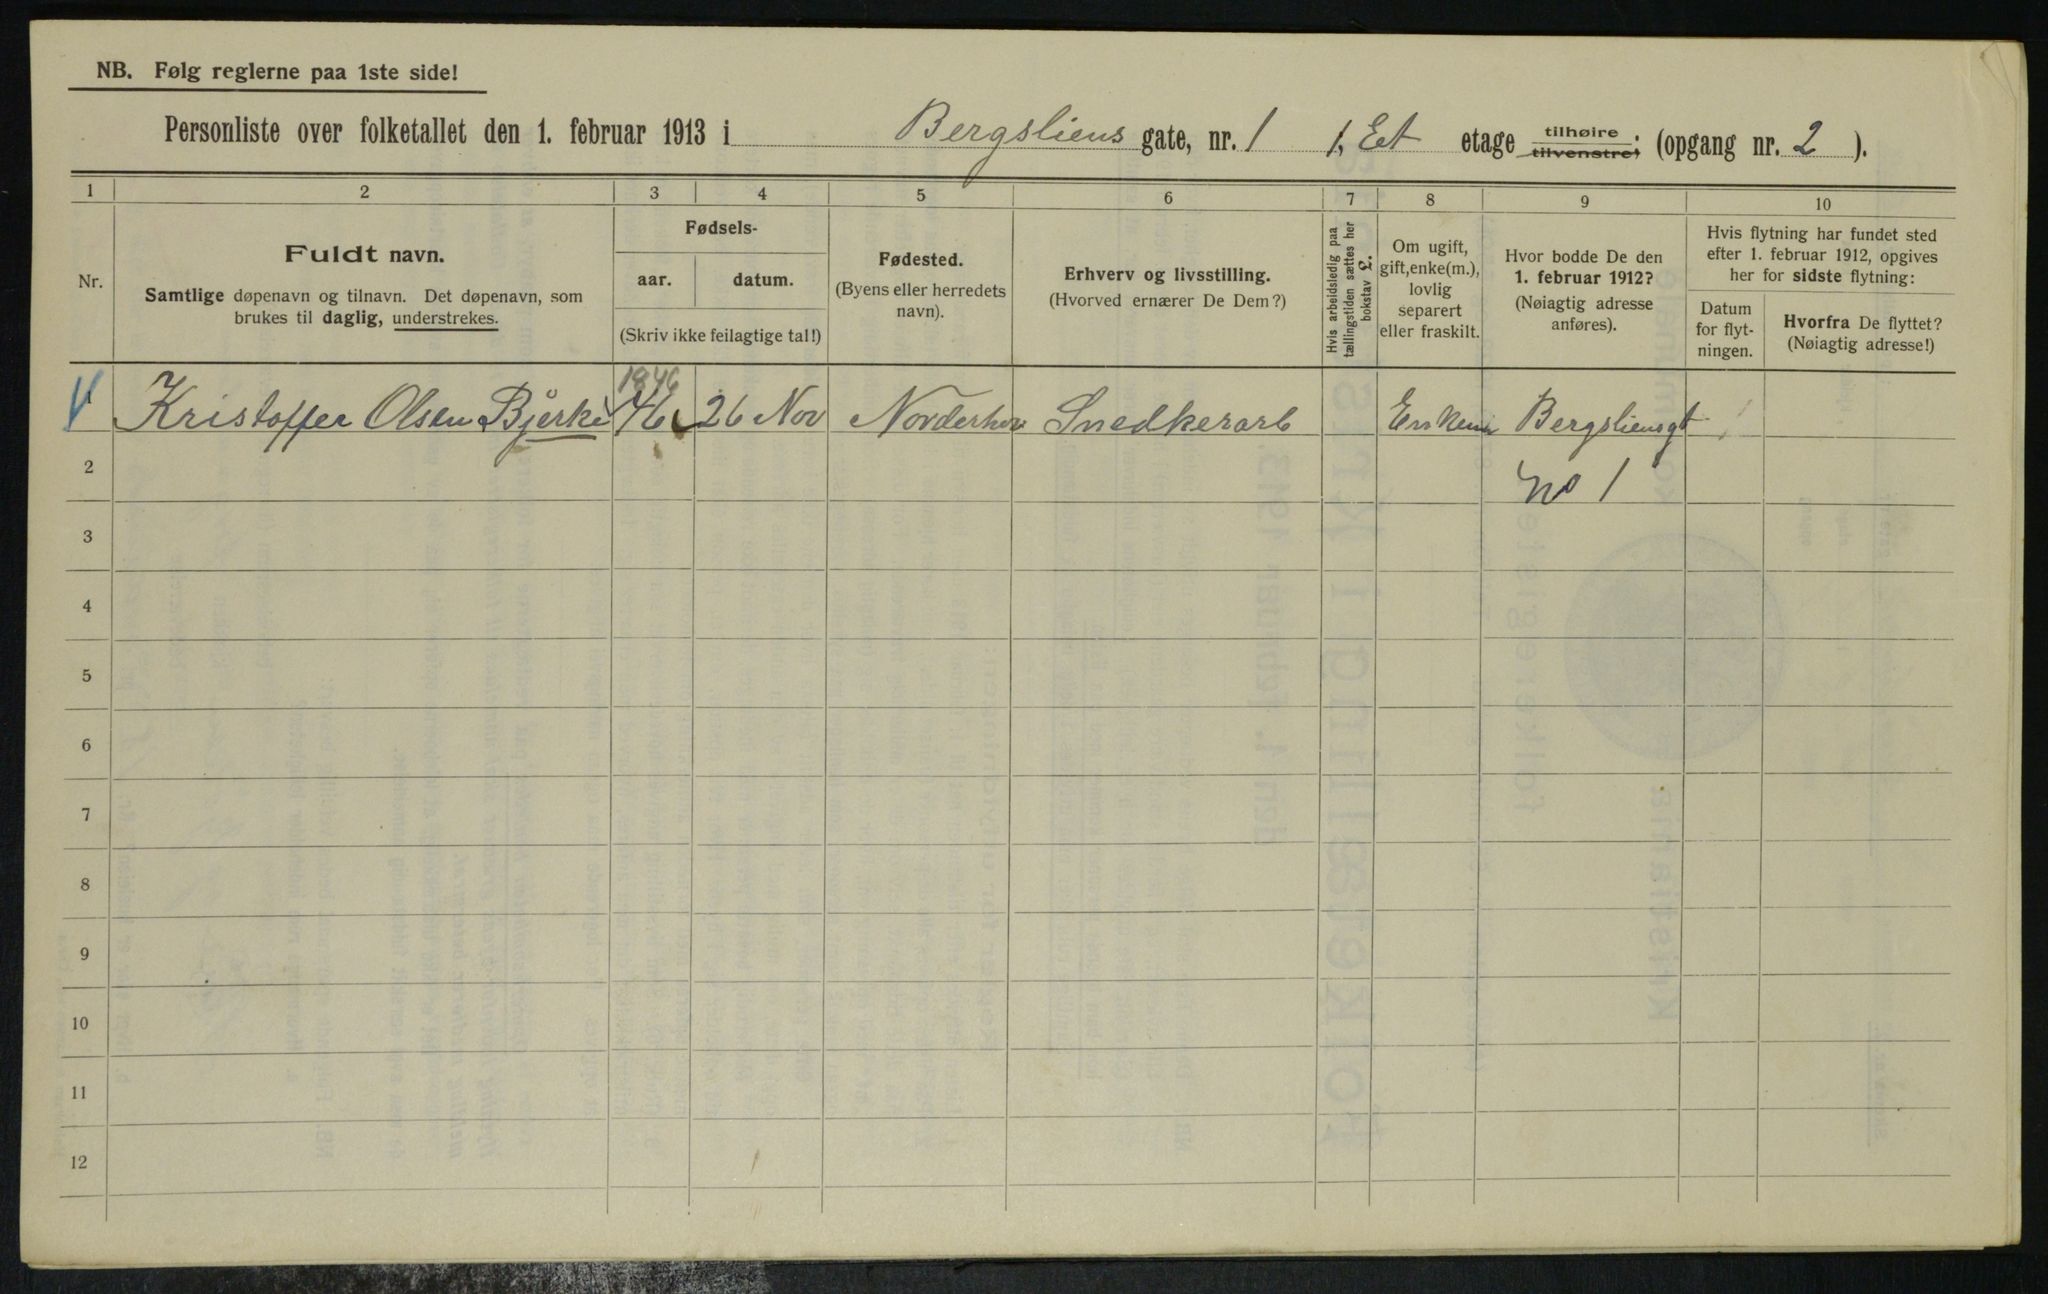 NB. Følg reglerne paa 1ste side!
Personliste over folketallet den 1. februar 1913 i Bergsliens gate, nr. 1 1, Et etage tilhøire tilvenstre; (opgang nr. 2 ).
1 2 3 4 5 6 7 8 9 10
Nr.
Fuldt navn.
Samtlige døpenavn og tilnavn. Det døpenavn, som
brukes til daglig, understrekes.
Fødsels-
aar. datum.
(Skriv ikke feilagtige tal!)
Fødested.
(Byens eller herredets
navn).
Erhverv og livsstilling.
(Hvorved ernærer De Dem?)
Hvis arbeidsledig paa
tællingstiden sættes her
bokstav £.
Om ugift,
gift, enke(m.),
lovlig
separert
eller fraskilt.
Hvor bodde De den
1. februar 1912?
(Nøiagtig adresse
anføres).
Hvis flytning har fundet sted
efter 1. februar 1912, opgives
her for sidste flytning:
Datum
for flyt-
ningen.
Hvorfra De flyttet?
(Nøiagtig adresse!)
1846
1 Kristoffer Olsen Bjerke 46 26 Nov Norderhov Snedkerarb Enkem Bergsliensgt
2 No 1
3
4
5
6
7
8
9
10
11
12